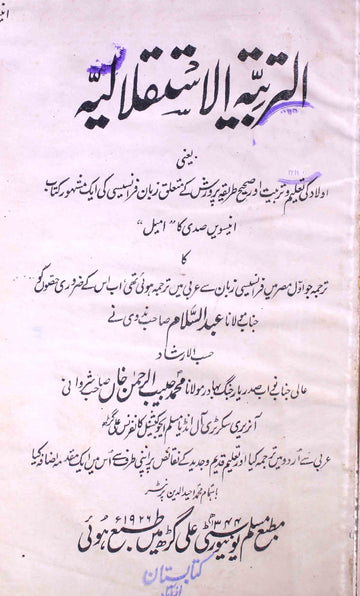 التربیۃ الاستقلالیہ
یعنی
اولاد کی تعلیم و تربیت اور صحیح طریقہ پرورش کے متعلق زبان فرانسیسی کی ایک مشہور کتاب
انیسویں صدی کا "امیل"
کا
ترجمہ جو اوّل مصر میں فرانسیسی زبان سے عربی میں ترجمہ ہوئی تھی اب اس کے ضروری حصّوں کو
جناب مولانا عبد السلام صاحب ندوی نے
حسب الارشاد
عالی جناب نواب صدر یار جنگ بہادر مولانا محمد حبیب الرحمن خاں صاحب شروانی
آنریری سکرٹری آل انڈیا مسلم ایجوکیشنل کانفرنس علی گڑھ
عربی سے اردو میں ترجمہ کیا اور تعلیم قدیم و جدید کے نقائص پر اپنی طرف سے اس میں ایک مقدمہ اضافہ کیا
باہتمام محمد وحید الدین پرنٹر
۱۳۴۴ھ ۱۹۲۶ء
مطبع مسلم یونیورسٹی علی گڑھ میں طبع ہوئی
کتابستان